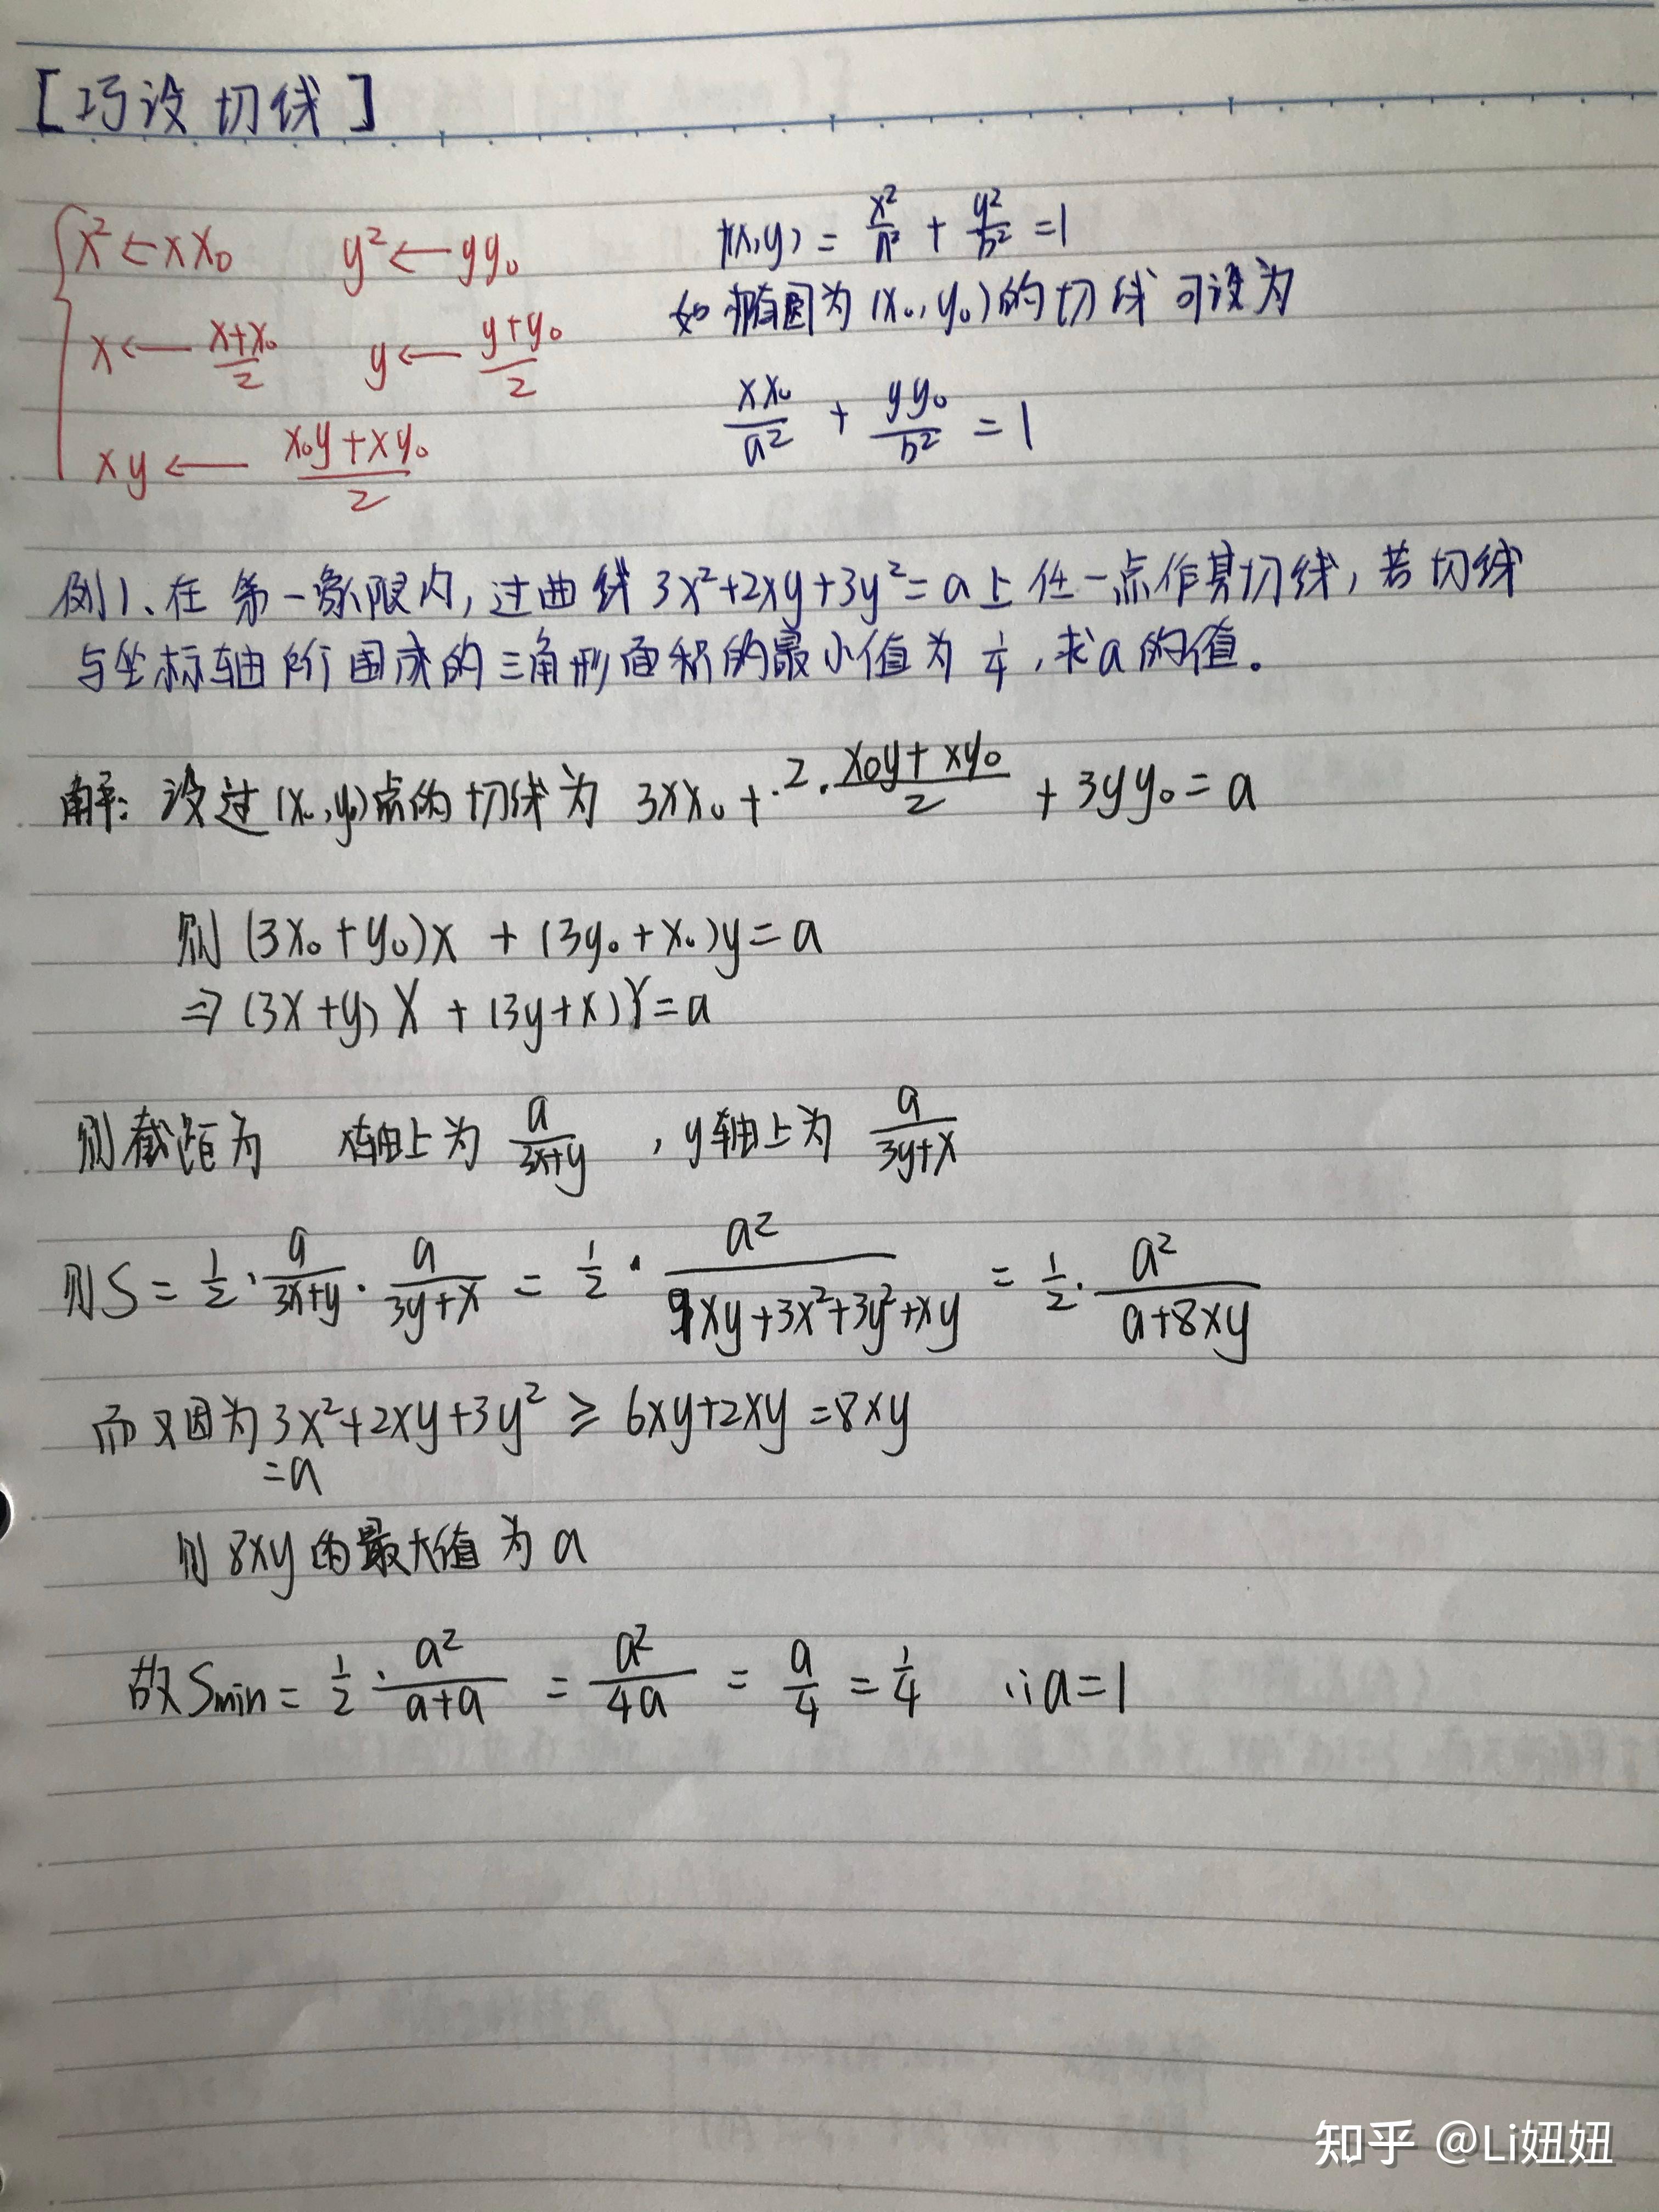 [巧设切线]
x² ← xx₀  y² ← yy₀
f(x,y) = x²/a² + y²/b² = 1
如椭圆为(x₀,y₀)的切线可设为
x ← (x+x₀)/2  y ← (y+y₀)/2
xx₀/a² + yy₀/b² = 1
xy ← (x₀y+xy₀)/2
例1、在第一象限内,过曲线3x²+2xy+3y²=a上任一点作其切线,若切线
与坐标轴所围成的三角形面积的最小值为1/4,求a的值。
解:设过(x₀,y₀)点的切线为 3xx₀+2·(x₀y+xy₀)/2+3yy₀=a
则(3x₀+y₀)x+(3y₀+x₀)y=a
⇒(3x+y)X+(3y+x)Y=a
则截距为 x轴上为 a/(3x+y) ,y轴上为 a/(3y+x)
则S=1/2·a/(3x+y)·a/(3y+x)=1/2·a²/(9xy+3x²+3y²+xy)=1/2·a²/(a+8xy)
而又因为3x²+2xy+3y²≥6xy+2xy=8xy
=a
则8xy的最大值为a
故Smin=1/2·a²/(a+a)=a²/4a=a/4=1/4 ∴a=1
知乎 @Li妞妞